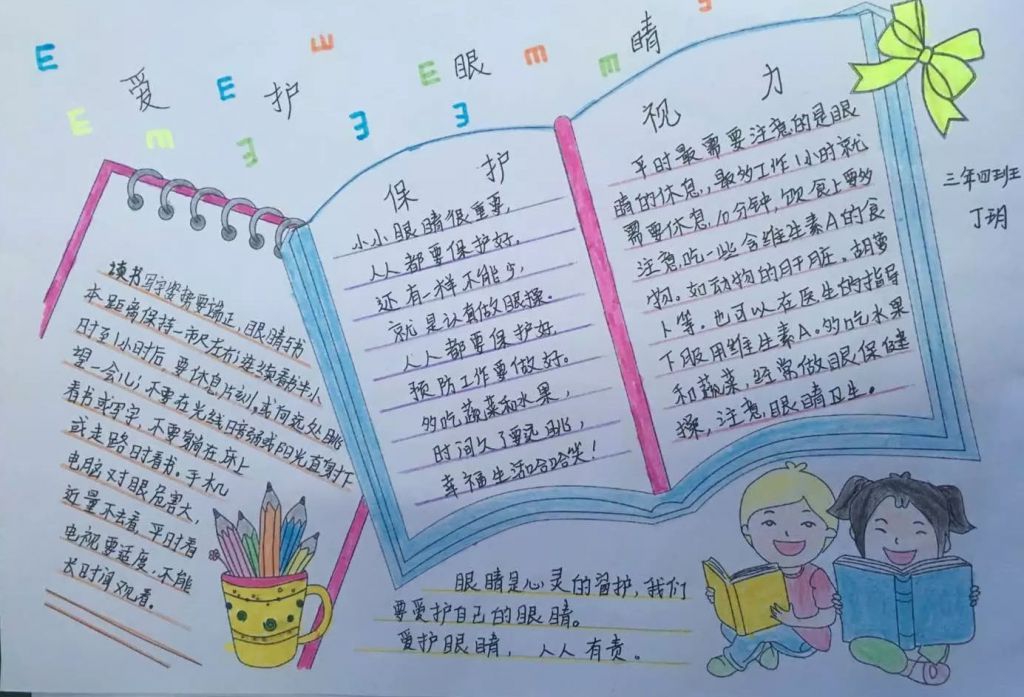 E E E E E E E E E E E E
爱护眼睛
读书写字姿势要端正，眼睛与书
本距离保持一市尺左右；连续看书半小
时至1小时后，要休息片刻，或向远处眺
望一会儿；不要在光线暗弱或阳光直射下
看书或写字，不要躺在床上
或走路时看书。手机
电脑对眼危害大，
近量不去看，平时看
电视要适度，不能
长时间观看。
保护
小小眼睛很重要，
人人都要保护好。
还有一样不能少，
就是认真做眼操。
人人都要保护好
预防工作要做好。
多吃蔬菜和水果，
时间久了要远眺，
幸福生活哈哈笑！
视力
平时最需要注意的是眼
睛的休息，最多工作1小时就
需要休息10分钟，饮食上要多
注意吃一些含维生素A的食
物。如动物的肝脏、胡萝
卜等。也可以在医生的指导
下服用维生素A。多吃水果
和蔬菜，经常做眼保健
操，注意眼睛卫生。
三年四班
丁玥
眼睛是心灵的窗护，我们
要爱护自己的眼睛。
爱护眼睛，人人有责。